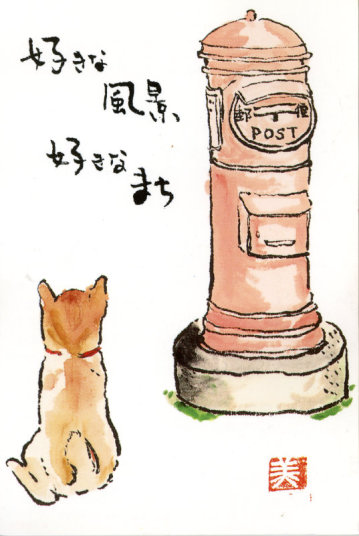 好きな
風景
好きな
まち
郵便
POST
美